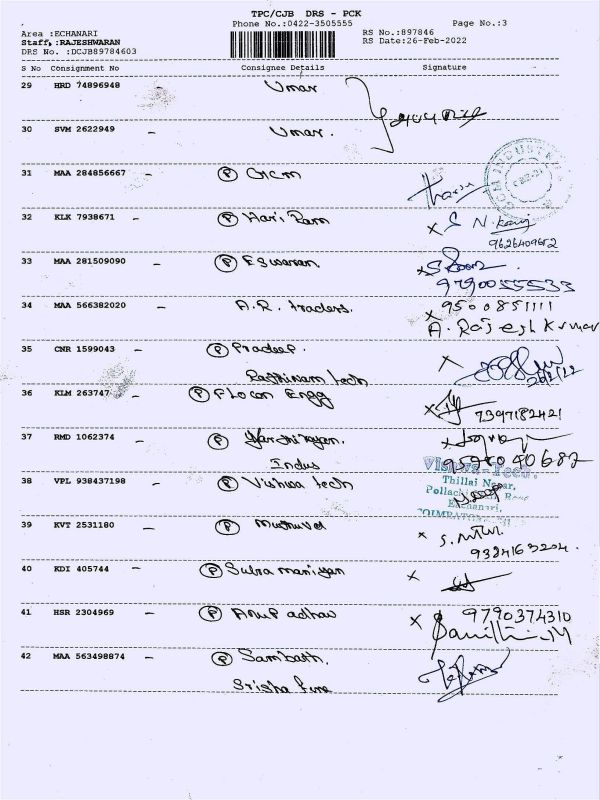 TPC/CJB DRS - PCK
Phone No.:0422-3505555 Page No.:3
Area :ECHANARI RS No.:897846
Staff :RAJESHWARAN RS Date:26-Feb-2022
DRS No. :DCJB89784603
S No Consignment No Consignee Details Signature
29 HRD 74896948 Umar
30 SVM 2622949 - Umar.
31 MAA 284856667 P GCM
32 KLK 7938671 - P Hari Ram x S N
9626409652
33 MAA 281509090 - P Eswaran. x
9790055533
34 MAA 566382020 - A.R. traders. x 9500851111
A. Rajesh Kumar
35 CNR 1599043 - P Pradeep. x
Rathinam tech
36 KLM 263747 - P Flocon Engg x 7397182421
37 RMD 1062374 - P x
Indus 9578040687
38 VPL 938437198 - P Vishwa tech
Thillai Nagar,
Pollachi Main Road
Eachanari,
39 KVT 2531180 - P Muthuvel x S.
9384163204.
40 KDI 405744 - P Subramaniyan x
41 HSR 2304969 - P Anup adhav x 9790374310
42 MAA 563498874 - P Sambath.